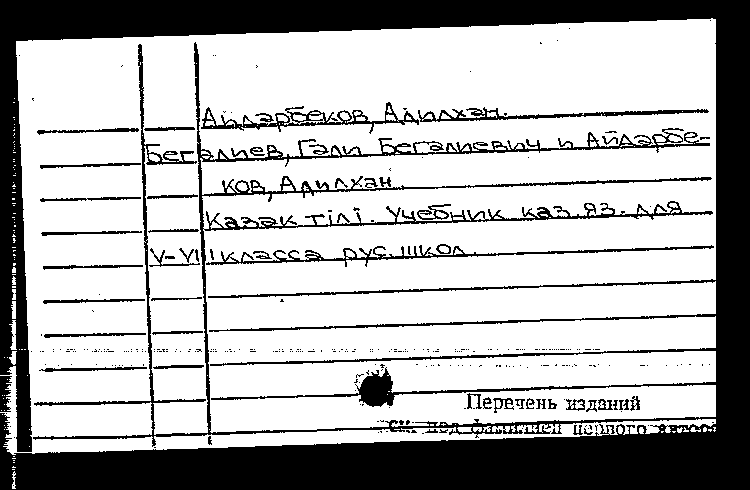 Айдарбеков, Адилхан.
Бегалиев, Гали Бегалиевич и Айдарбе-
ков, Адилхан.
Казак тілі. Учебник каз. яз. для
V-VII класса рус. школ.
Перечень изданий
см. под фамилией первого автора